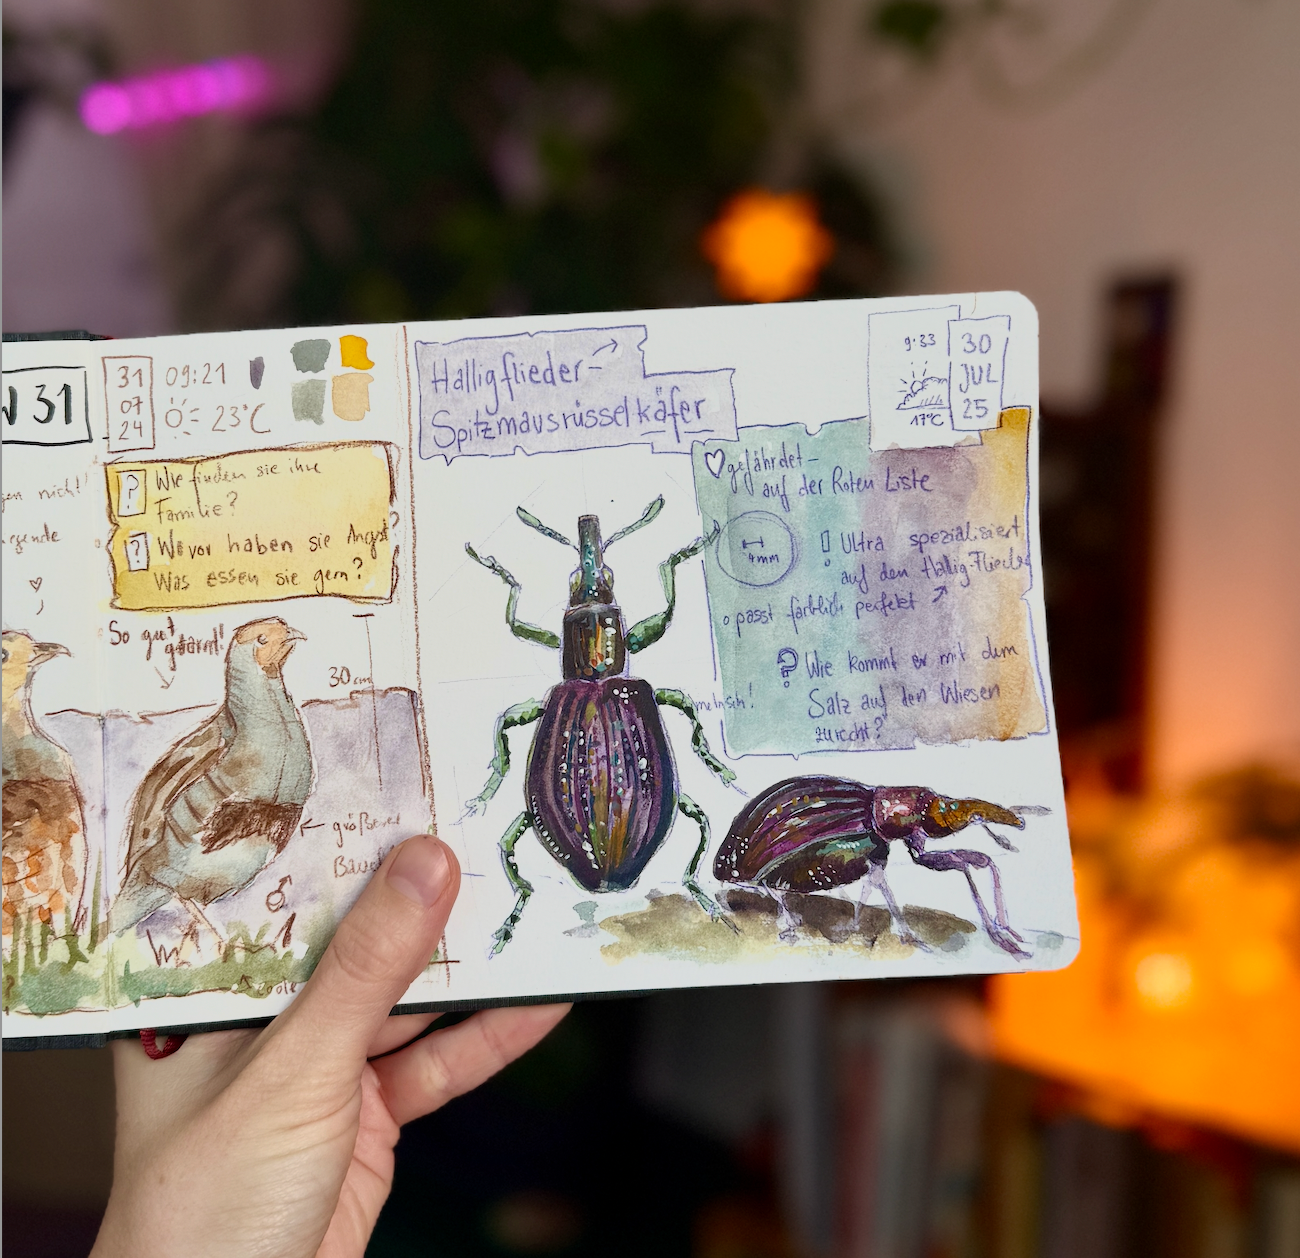 31
gen nicht!
31
07
24
09:21
23°C
? Wie finden sie ihre
Familie?
? Wovor haben sie Angst?
Was essen sie gern?
So gut
getarnt!
30cm
← größerer
♂
Halligflieder-
Spitzmausrüsselkäfer
9:33
17°C
30
JUL
25
♡ gefährdet-
auf der Roten Liste
4mm
! Ultra spezialisiert
auf den Hallig-Flieder
o passt farblich perfekt
? Wie kommt er mit dem
Salz auf den Wiesen
zurecht?